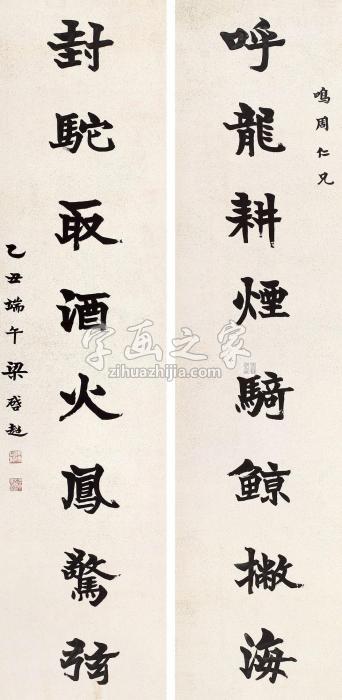 鳴周仁兄
呼龍耕煙騎鯨撇海
封駝取酒火鳳驚弦
乙丑端午梁啓超
字画之家
zihuazhijia.com